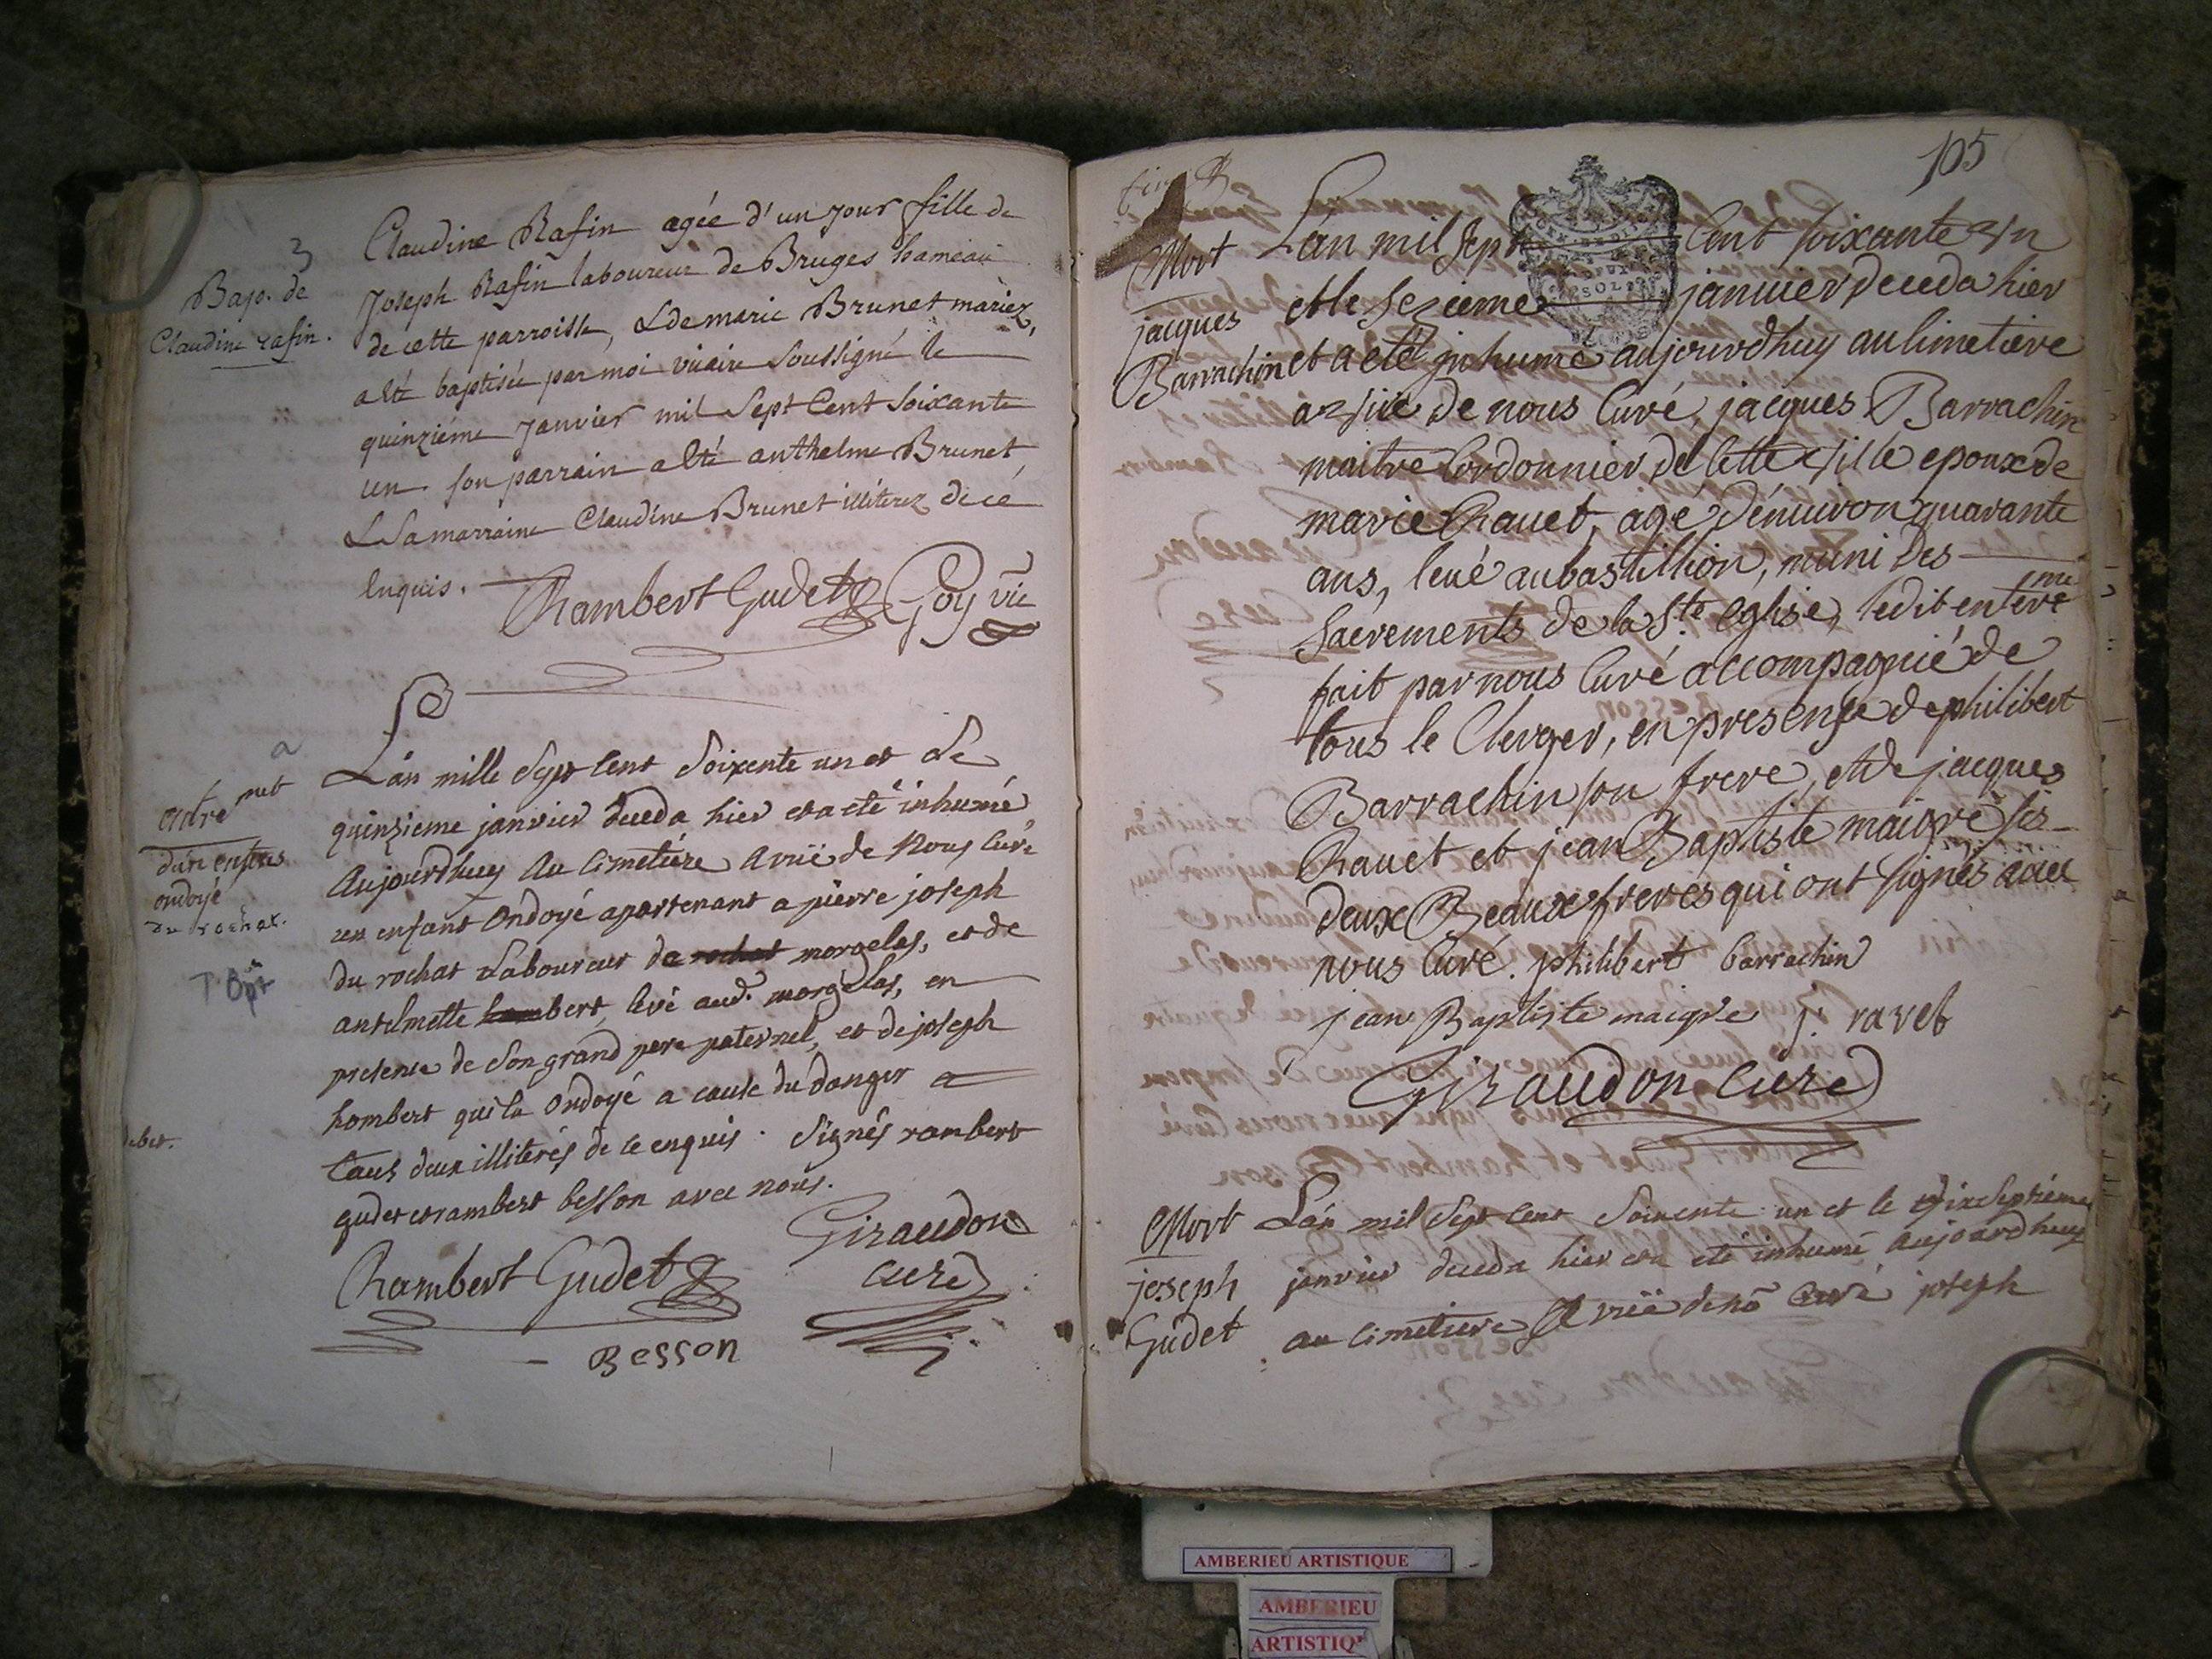 3
Bap. de
Claudine rafin.
Claudine Rafin agée d'un jour fille de
Joseph Rafin laboureur de Bruges hameau
de cette parroisse, & de marie Brunet mariez,
a été baptisée par moi vicaire soussigné le
quinziéme janvier mil sept cent soixante
un. son parrain a été anthelme Brunet,
& sa marraine Claudine Brunet illiterez de cé
enquis.
Rambert Gudet Goy vic
a
du rochat.
L'an mille sept cent soixente un et le
quinzieme janvier deceda hier et a eté inhumé
Aujourdhuy au cimetiere a vrië de nous curé
un enfant ondoyé apartenant a pierre joseph
du rochat Laboureur de rochat morgelas, et de
antelmette hombert, levé aud. morgelas, en
presence de son grand pere paternel, et de joseph
hombert qui la ondoyé a cause du danger
tous deux illiterés de ce enquis. signés rambert
gudet et rambert besson avec nous.
Giraudon
curé
Rambert Gudet
Besson
105
Mort
jacques
Barrachin
L'an mil sept cent soixante un
et le sezieme janvier deceda hier
et a eté inhumé aujourd'huy au cimetiere
de nous Curé, jacques Barrachin
maitre Cordonnier de cette ville epoux de
marie Rauet, agé d'énuiron quarante
ans, leué au bastillion, muni des
sacrements de la Ste eglise, ledit enterremt
fait par nous Curé accompagnié de
tous le Clerger, en presense de philibert
Barrachin son frere, et de jacques
Rauet et jean Baptiste maigre ses
deux Beaux freres qui ont signés auec
nous Curé. philibert barrachin
jean Baptiste maigre j. ravet
Giraudon curé
Mort
joseph
Gudet
L'an mil sept cent soixente un et le dixseptieme
janvier deceda hier et a eté inhumé aujourdhuy
au cimetiere a vrië de nô curé joseph
AMBERIEU ARTISTIQUE
AMBERIEU
ARTISTIQ